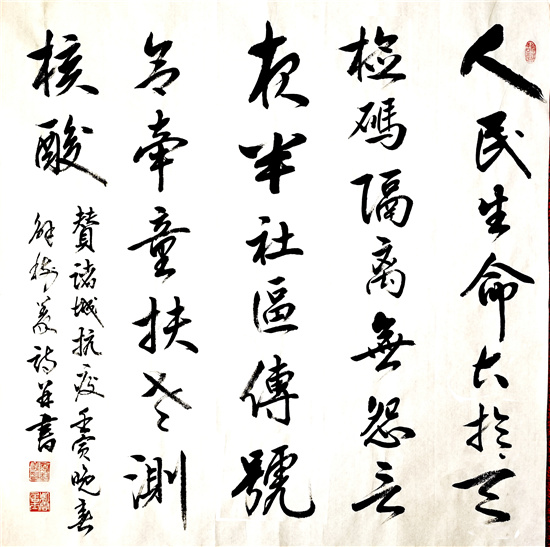 人民生命大於天
檢碼隔离無怨言
夜半社區傳號
令牽童扶老測
核酸
賛诸城抗疫壬寅晚春
解樹義詩并書